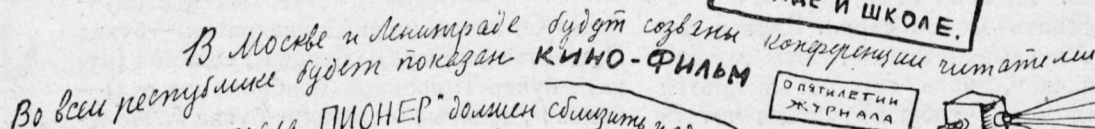 И ШКОЛЕ.
В Москве и Ленинграде будут созваны конференции читателей
Во всей республике будет показан КИНО-ФИЛЬМ
О ПЯТИЛЕТИИ
ЖУРНАЛА
ПИОНЕР" должен сблизить